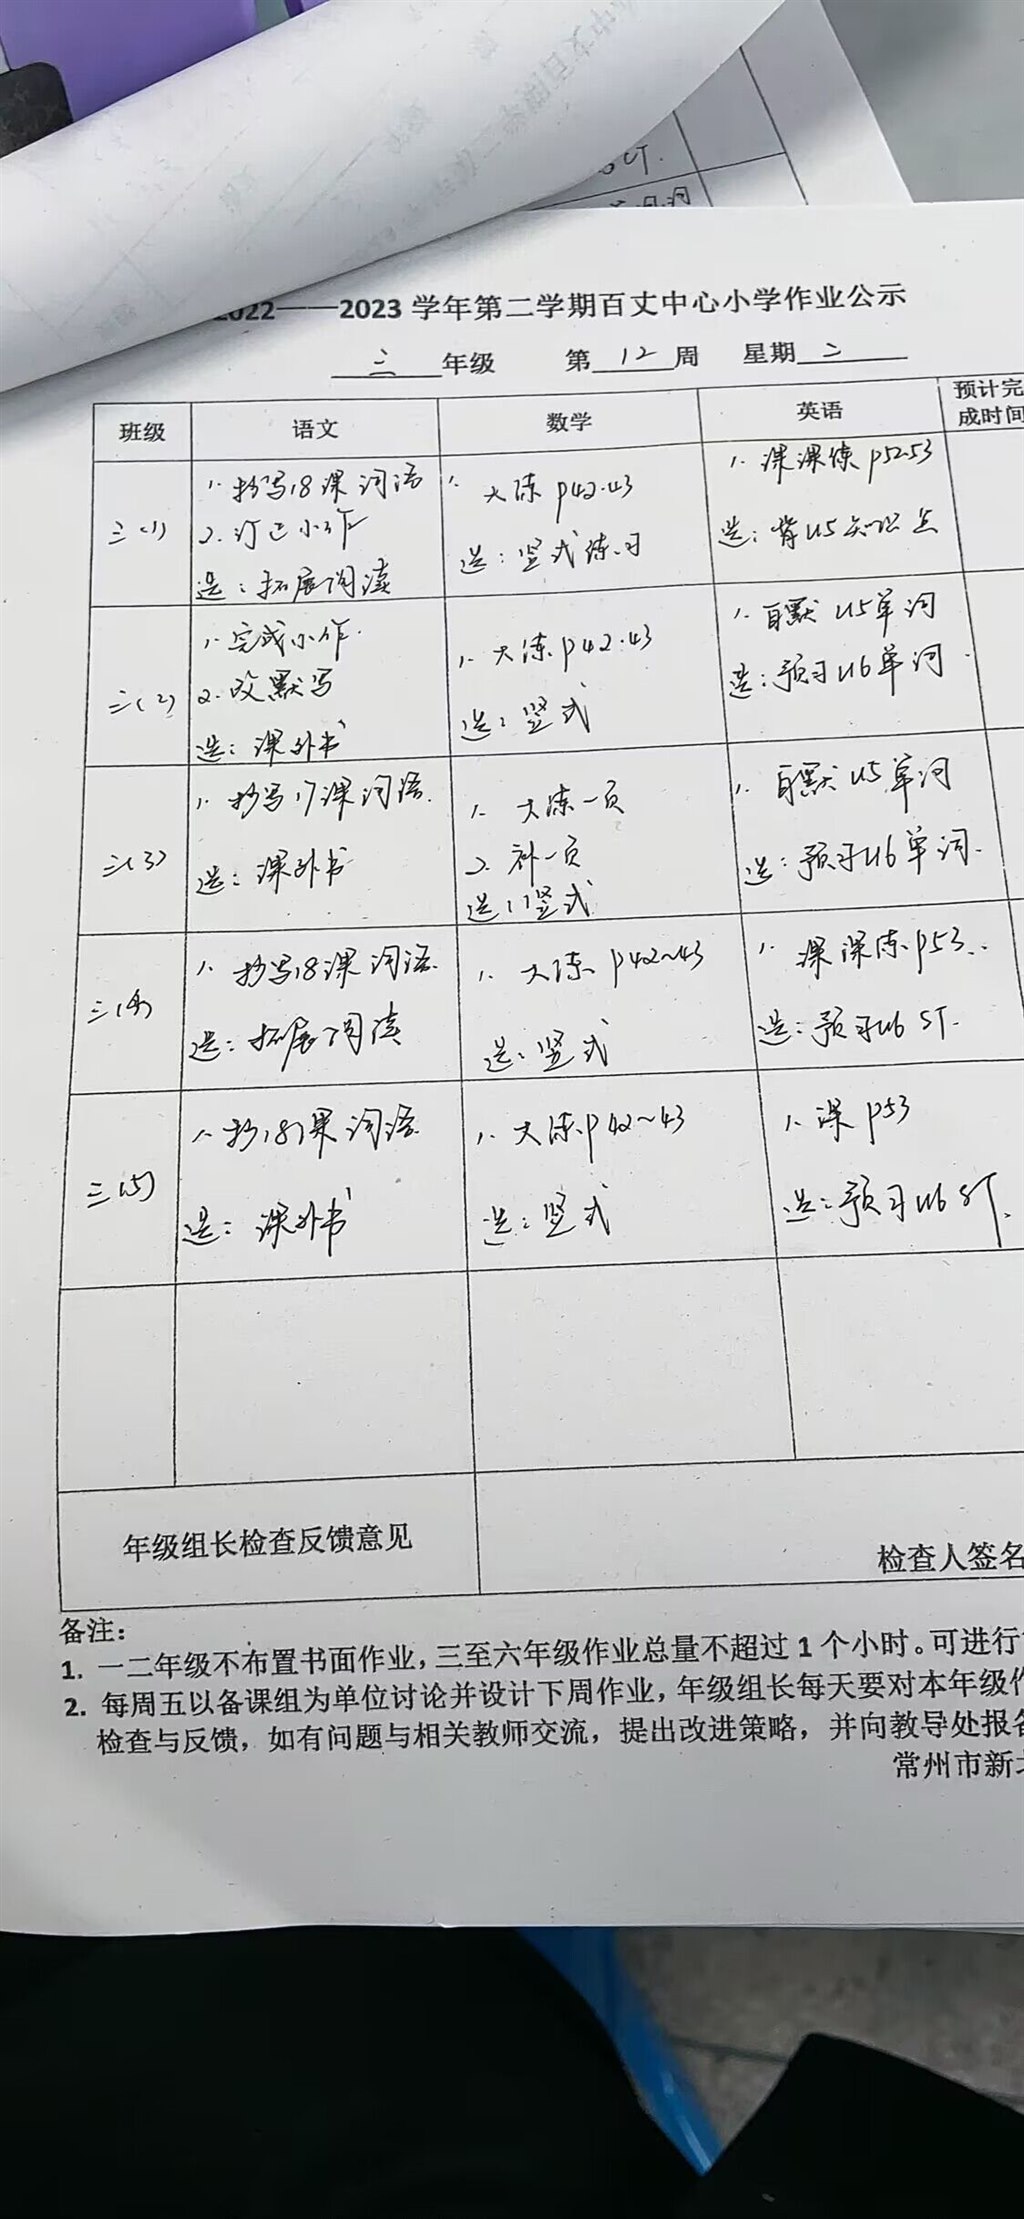 2022——2023 学年第二学期百丈中心小学作业公示
三 年级 第 12 周 星期 二
班级 语文 数学 英语 预计完
成时间
三(1)
1. 抄写18课词语
2. 订正小作
选：拓展阅读
1. 大练 P42.43
选：竖式练习
1. 课课练 P52.53
选：背U5知识点
三(2)
1. 完成小作.
2. 改默写
选：课外书
1. 大练 P42.43
选：竖式
1. 自默 U5单词
选：预习U6单词.
三(3)
1. 抄写17课词语.
选：课外书
1. 大练一页
2. 补一页
选：竖式
1. 自默 U5单词
选：预习U6单词.
三(4)
1. 抄写18课词语.
选：拓展阅读
1. 大练 P42~43
选：竖式
1. 课课练 P53.
选：预习U6 ST.
三(5)
1. 抄18课词语.
选：课外书
1. 大练 P42~43
选：竖式
1. 课 P53
选：预习U6 ST.
年级组长检查反馈意见
检查人签名
备注：
1. 一二年级不布置书面作业，三至六年级作业总量不超过 1 个小时。可进行
2. 每周五以备课组为单位讨论并设计下周作业，年级组长每天要对本年级作
检查与反馈，如有问题与相关教师交流，提出改进策略，并向教导处报名
常州市新北